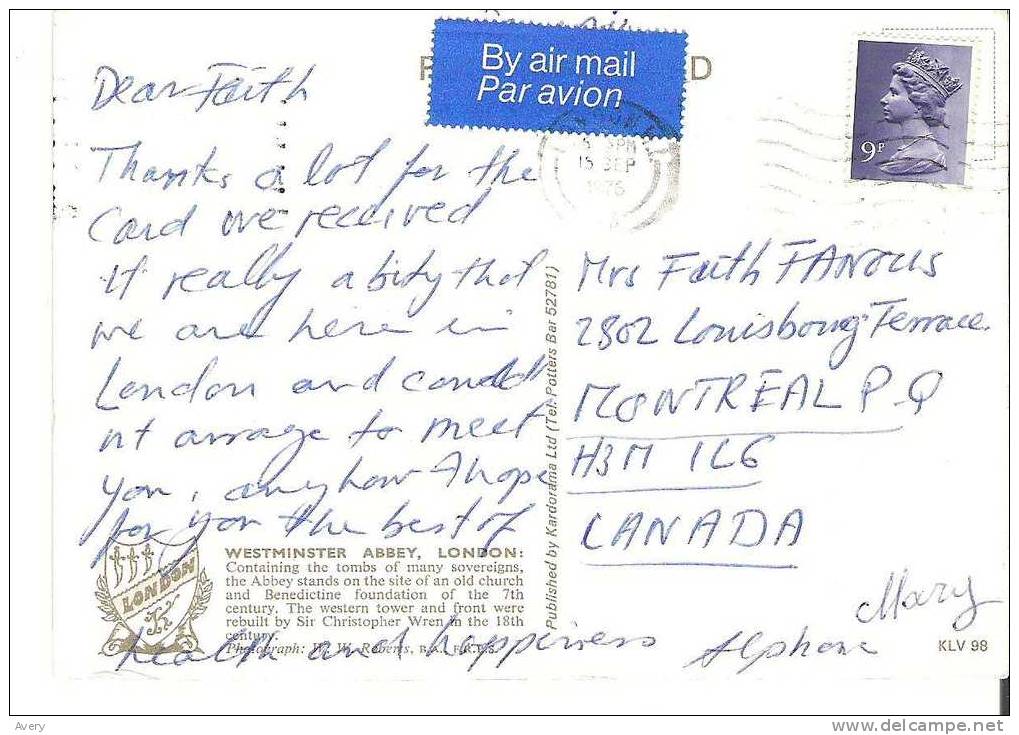 By air mail
Par avion
P D
5 PM
15 SEP
1976
9P
Dear Faith
Thanks a lot for the
Card we received
it really a bity that
we are here in
London and could
nt arrage to meet
you, anyhow I hope
for you the best of
health and happiness
Alphone
Mary
Mrs Faith FANOUS
2802 Louisbourg Terrace.
MONTREAL P.Q
H3M 1L6
CANADA
Published by Kardorama Ltd (Tel: Potters Bar 52781)
LONDON
K
WESTMINSTER ABBEY, LONDON:
Containing the tombs of many sovereigns,
the Abbey stands on the site of an old church
and Benedictine foundation of the 7th
century. The western tower and front were
rebuilt by Sir Christopher Wren in the 18th
century.
Photograph: W. W. Roberts, B.A., F.R.P.S.
KLV 98
Avery
delcampe.net